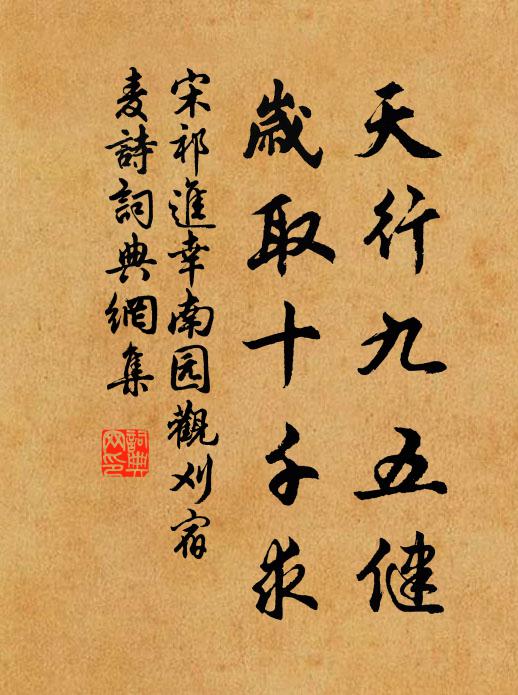 天行九五健
歲取十千求
宋祁進幸南园觀刈宿
麦詩詞典網集
詞典
网印